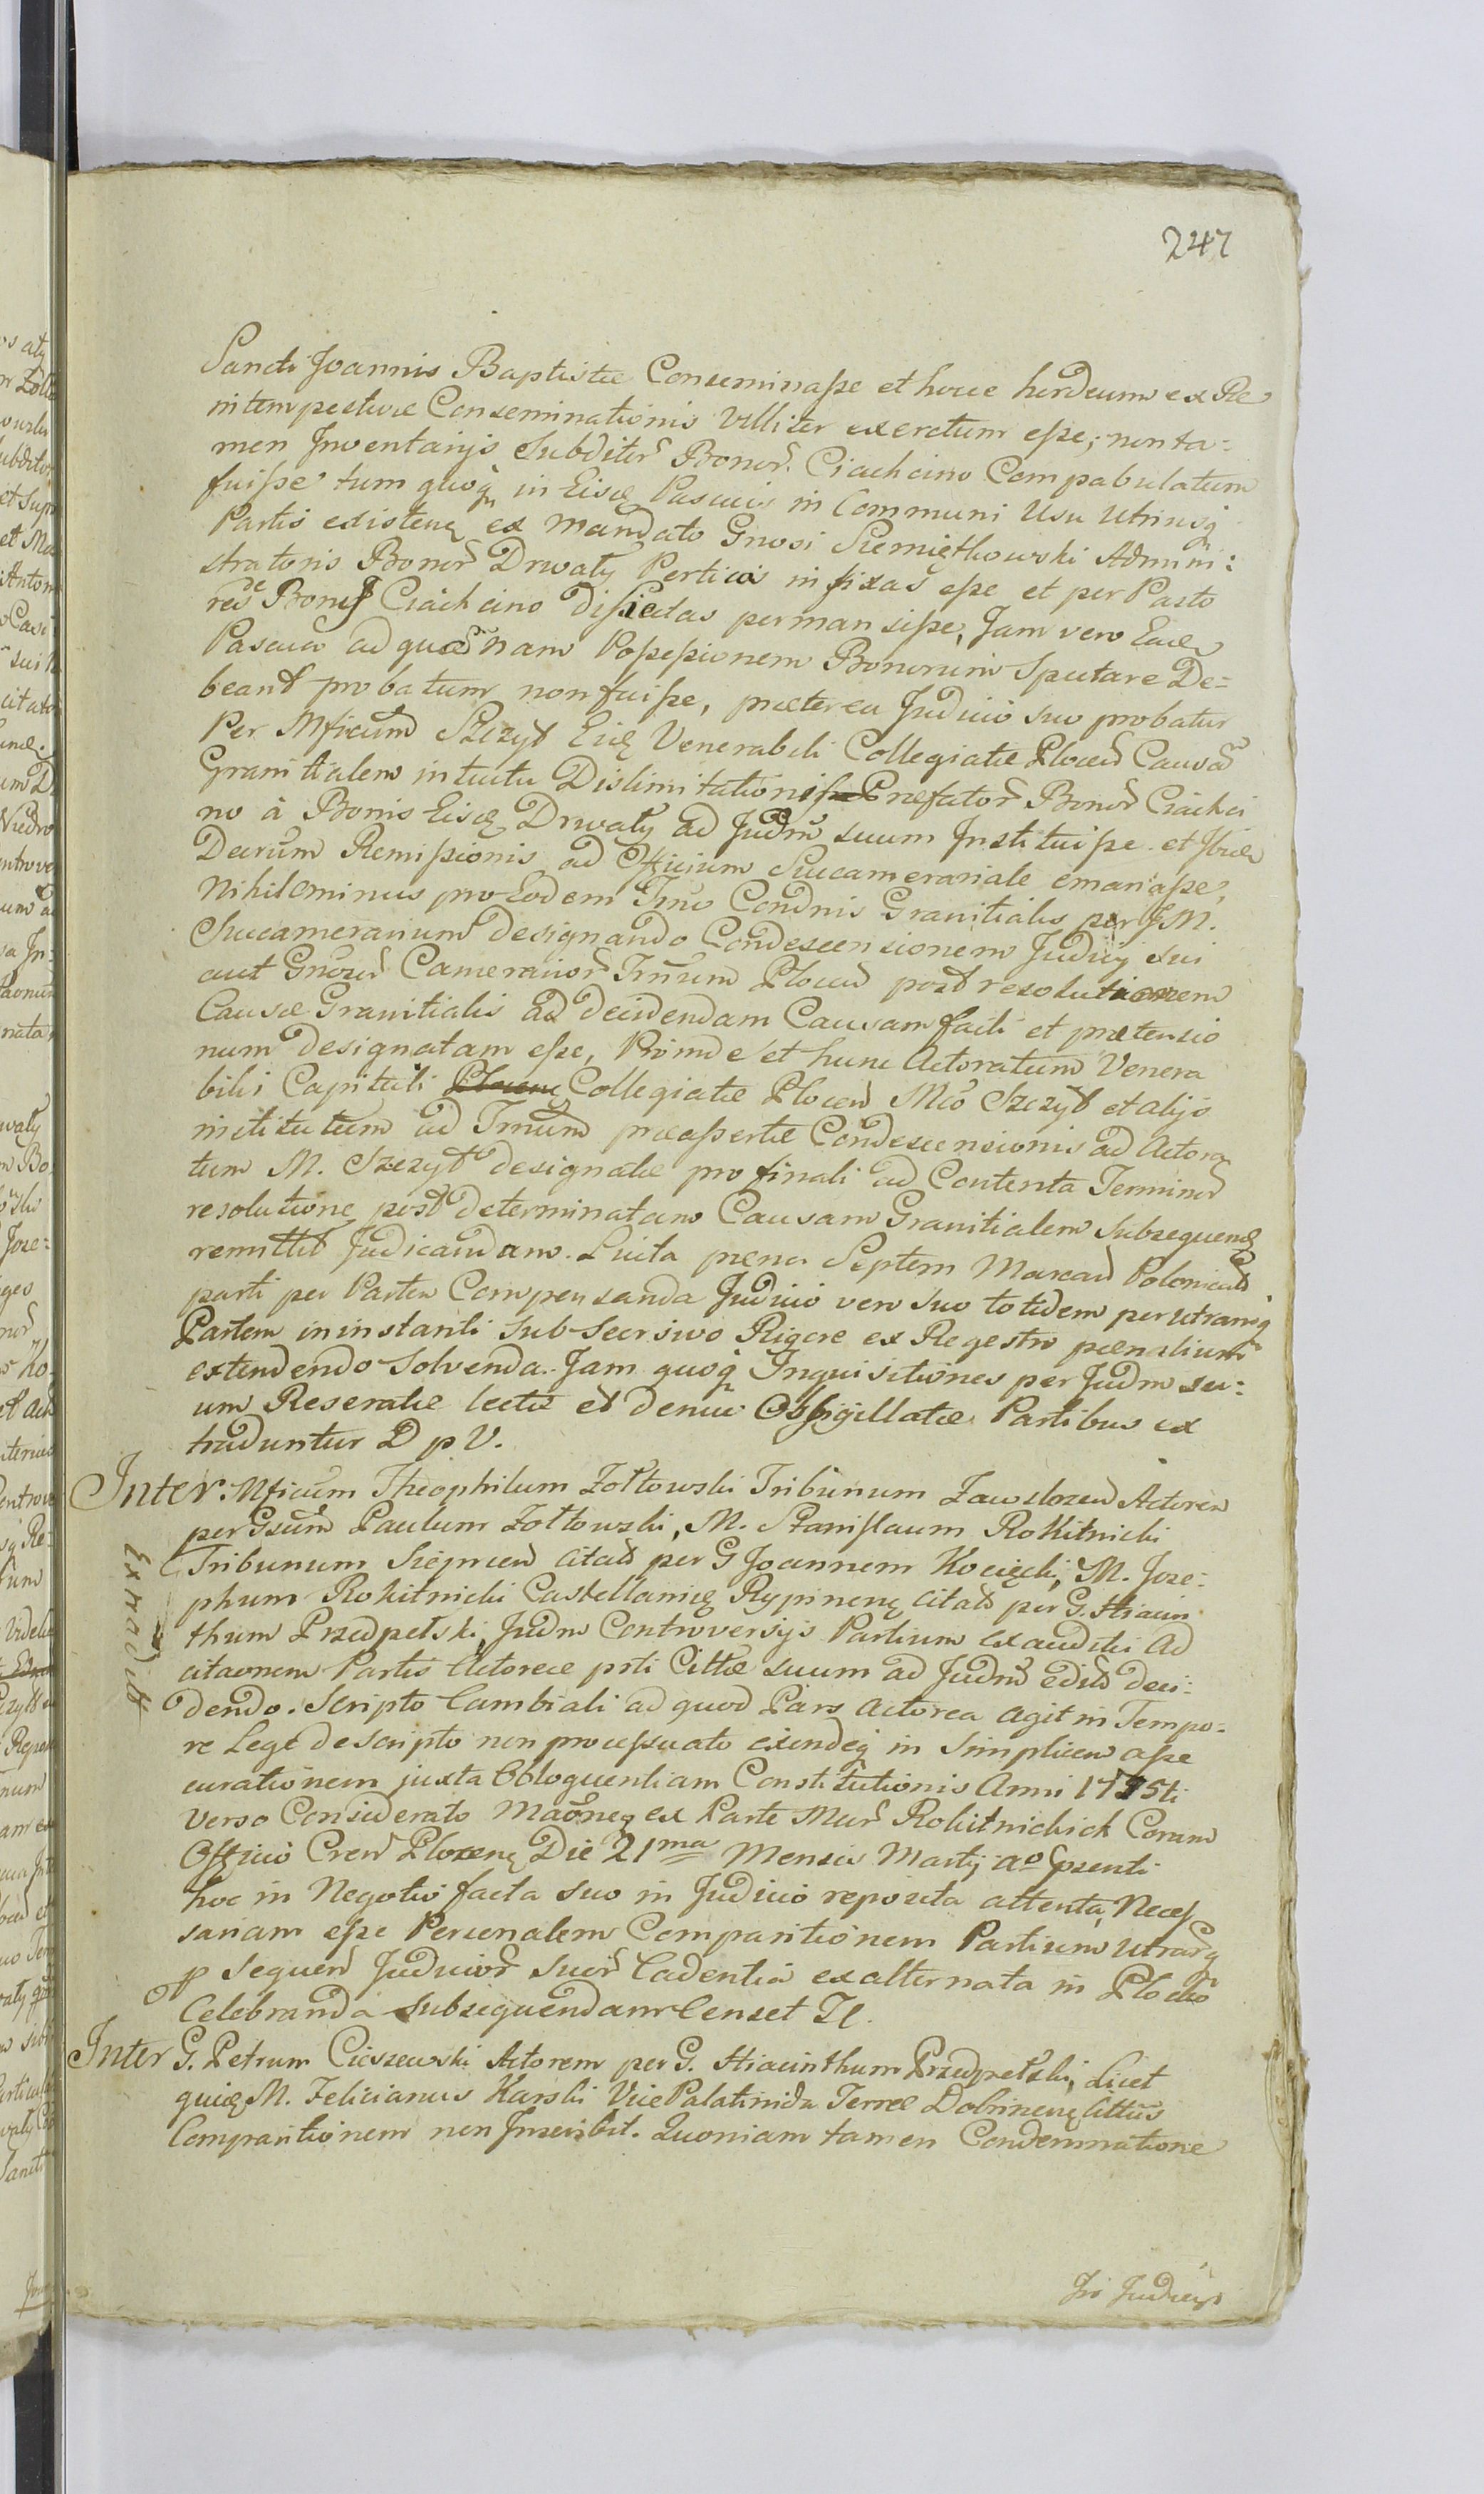 247
Sancti Joannis Baptistæ Conseminaſse et hocce hordeum ex Re
intempestivæ Conseminationis Villiter excretum eſse, non ta:
men Inventarijs Subditor Bonor. Ciachcino Compabulatum
fuiſse tum quoq in Eisd Pascuis in Communi Usu Utriusq
Partis existen ex Mandato Gnosi Siemiątkowski Admini:
stratoris Bonor Drwaty Perticas infixas eſse et per Pasto
res de Bonis Ciachcino disſectas permansiſse, Jam vero Eaed
Pascua ad quam nam Poſseſsionem Bonorum Spectare De=
beant probatum non fuiſse, præterea Judicio suo probatur
Per Mficum Szczyt Eid Venerabili Collegiatæ Plocen Causa
Granitialem intuitu Dislimitationis Prefator Bonor Ciachci
no à Bonis Eisd Drwaty ad Judm suum Instituiſse et Ibid
Decrum Remiſsionis ad Officium Succamerariale emanaſse,
Nihilominus pro Eodem Tmo Condnis Granitialis per J M.
Succamerarium designando Condescensionem Judicij sui
aut Gnosor Camerarior Tmum Plocen post resolutionem
Causæ Granitialis ad decidendam Causam facti et prætensio
num designatam eſse, Proinde et hunc Actoratum Venera
bili Capituli Plocen Collegiatæ Plocen Mco Szczyt et alijs
institutum ad Tmum præaſsertæ Condescensionis ad Actora
tum M. Szczyt designatæ pro finali ad Contenta Terminor
resolutione post determinatam Causam Granitialem Subsequen
remittit Judicandam. Luita pæna Septem Marcar Polonical
parti per Partem Compensanda Judicio vero suo totidem per Utramq
Partem in instanti sub Secrsivo Rigore ex Regestro pænalium
extendendo Solvenda. Jam quoq Inquisitiones per Judm su:
um Reseratæ lectæ et denuo Obsigillatæ Partibus ex
traduntur D p V.
Inter. Mficum Theophilum Zołtowski Tribunum Zawskrzen Actorem
per Gsum Paulum Zołtowski, M. Stanislaum Rokitnicki
Tribunum Sieprcen Citat per G Joannem Kocięcki, M. Jose:
phum Rokitnicki Castellanid Rypinen Citat per G. Hiacin
thum Przedpełski, Judm Controversijs Partium exauditis Ad
citaonem Partis Actoreæ psti Cittæ suum ad Judm edito deci:
dendo. Scripto Cambiali ad quod Pars Actorea agit in Tempo:
re Lege descripto non proceſsuato exindeq in simplicem aſse
curationem juxta Obloquentiam Constitutionis Anni 1775ti
Verso Considerato Maoneq ex Parte Mcor Rokitnickich Coram
Officio Cren Plocen Die 21ma Mensis Martij ao psenti
hoc in Negotio facta suo in Judicio reposita attenta, Neceſ
sariam eſse Personalem Comparitionem Partium Utrarq
p sequen Judicior suor Cadentia exalternata in Plocko
Celebranda Subsequendam Censet Il.
Extradit
Inter G. Petrum Cieszewski Actorem per G. Hiacinthum Przedpełski, Licet
quid M. Felicianus Karski Vice Palatinida Terræ Dobrinen Cittus
Comparitionem non Inscribit. Quoniam tamen Condemnatione
In Judicijs